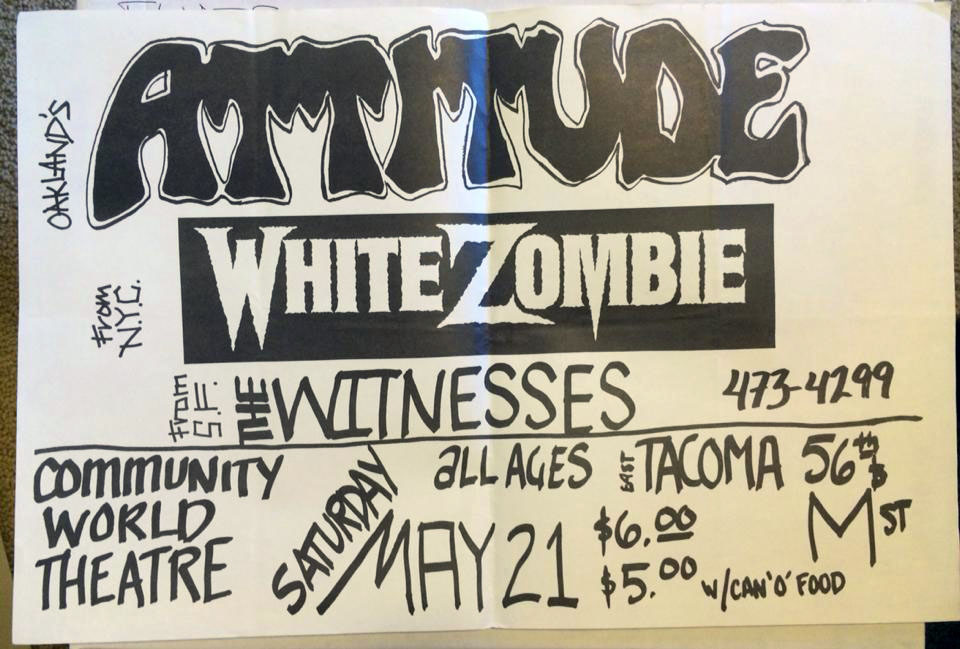 OAKLAND'S
ATTITUDE
from N.Y.C.
WHITE ZOMBIE
from S.F.
THE WITNESSES
473-4299
COMMUNITY WORLD THEATRE
SATURDAY
MAY 21
ALL AGES
EAST TACOMA 56th & M ST
$6.00
$5.00 w/CAN 'O' FOOD